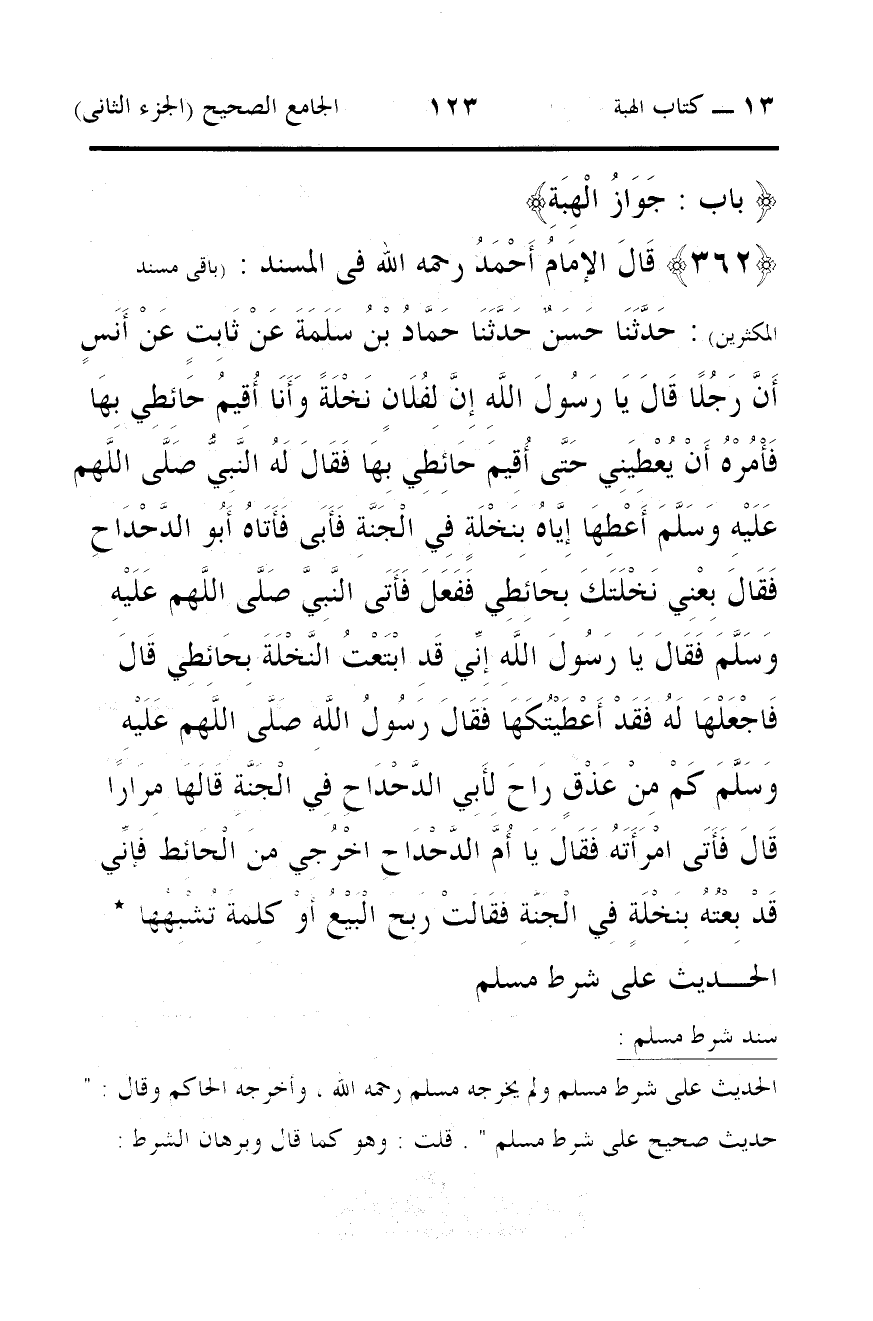 ١٣ ــ كتاب الهبة ١٢٣ الجامع الصحيح (الجزء الثانى)
﴿ باب : جَوَازُ الْهِبَةِ﴾
﴿٣٦٢﴾ قَالَ الإِمَامُ أَحْمَدُ رحمه الله فى المسند : (باقى مسند
المكثرين) : حَدَّثَنَا حَسَنٌ حَدَّثَنَا حَمَّادُ بْنُ سَلَمَةَ عَنْ ثَابِتٍ عَنْ أَنَسٍ
أَنَّ رَجُلًا قَالَ يَا رَسُولَ اللَّهِ إِنَّ لِفُلَانٍ نَخْلَةً وَأَنَا أُقِيمُ حَائِطِي بِهَا
فَأْمُرْهُ أَنْ يُعْطِيَنِي حَتَّى أُقِيمَ حَائِطِي بِهَا فَقَالَ لَهُ النَّبِيُّ صَلَّى اللَّهم
عَلَيْهِ وَسَلَّمَ أَعْطِهَا إِيَّاهُ بِنَخْلَةٍ فِي الْجَنَّةِ فَأَبَى فَأَتَاهُ أَبُو الدَّحْدَاحِ
فَقَالَ بِعْنِي نَخْلَتَكَ بِحَائِطِي فَفَعَلَ فَأَتَى النَّبِيَّ صَلَّى اللَّهم عَلَيْهِ
وَسَلَّمَ فَقَالَ يَا رَسُولَ اللَّهِ إِنِّي قَدِ ابْتَعْتُ النَّخْلَةَ بِحَائِطِي قَالَ
فَاجْعَلْهَا لَهُ فَقَدْ أَعْطَيْتُكَهَا فَقَالَ رَسُولُ اللَّهِ صَلَّى اللَّهم عَلَيْهِ
وَسَلَّمَ كَمْ مِنْ عَذْقٍ رَاحَ لِأَبِي الدَّحْدَاحِ فِي الْجَنَّةِ قَالَهَا مِرَارًا
قَالَ فَأَتَى امْرَأَتَهُ فَقَالَ يَا أُمَّ الدَّحْدَاحِ اخْرُجِي مِنَ الْحَائِطِ فَإِنِّي
قَدْ بِعْتُهُ بِنَخْلَةٍ فِي الْجَنَّةِ فَقَالَتْ رَبِحَ الْبَيْعُ أَوْ كَلِمَةً تُشْبِهُهَا *
الحـــديث على شرط مسلم
سند شرط مسلم :
الحديث على شرط مسلم ولم يخرجه مسلم رحمه الله ، وأخرجه الحاكم وقال : "
حديث صحيح على شرط مسلم " . قلت : وهو كما قال وبرهان الشرط :